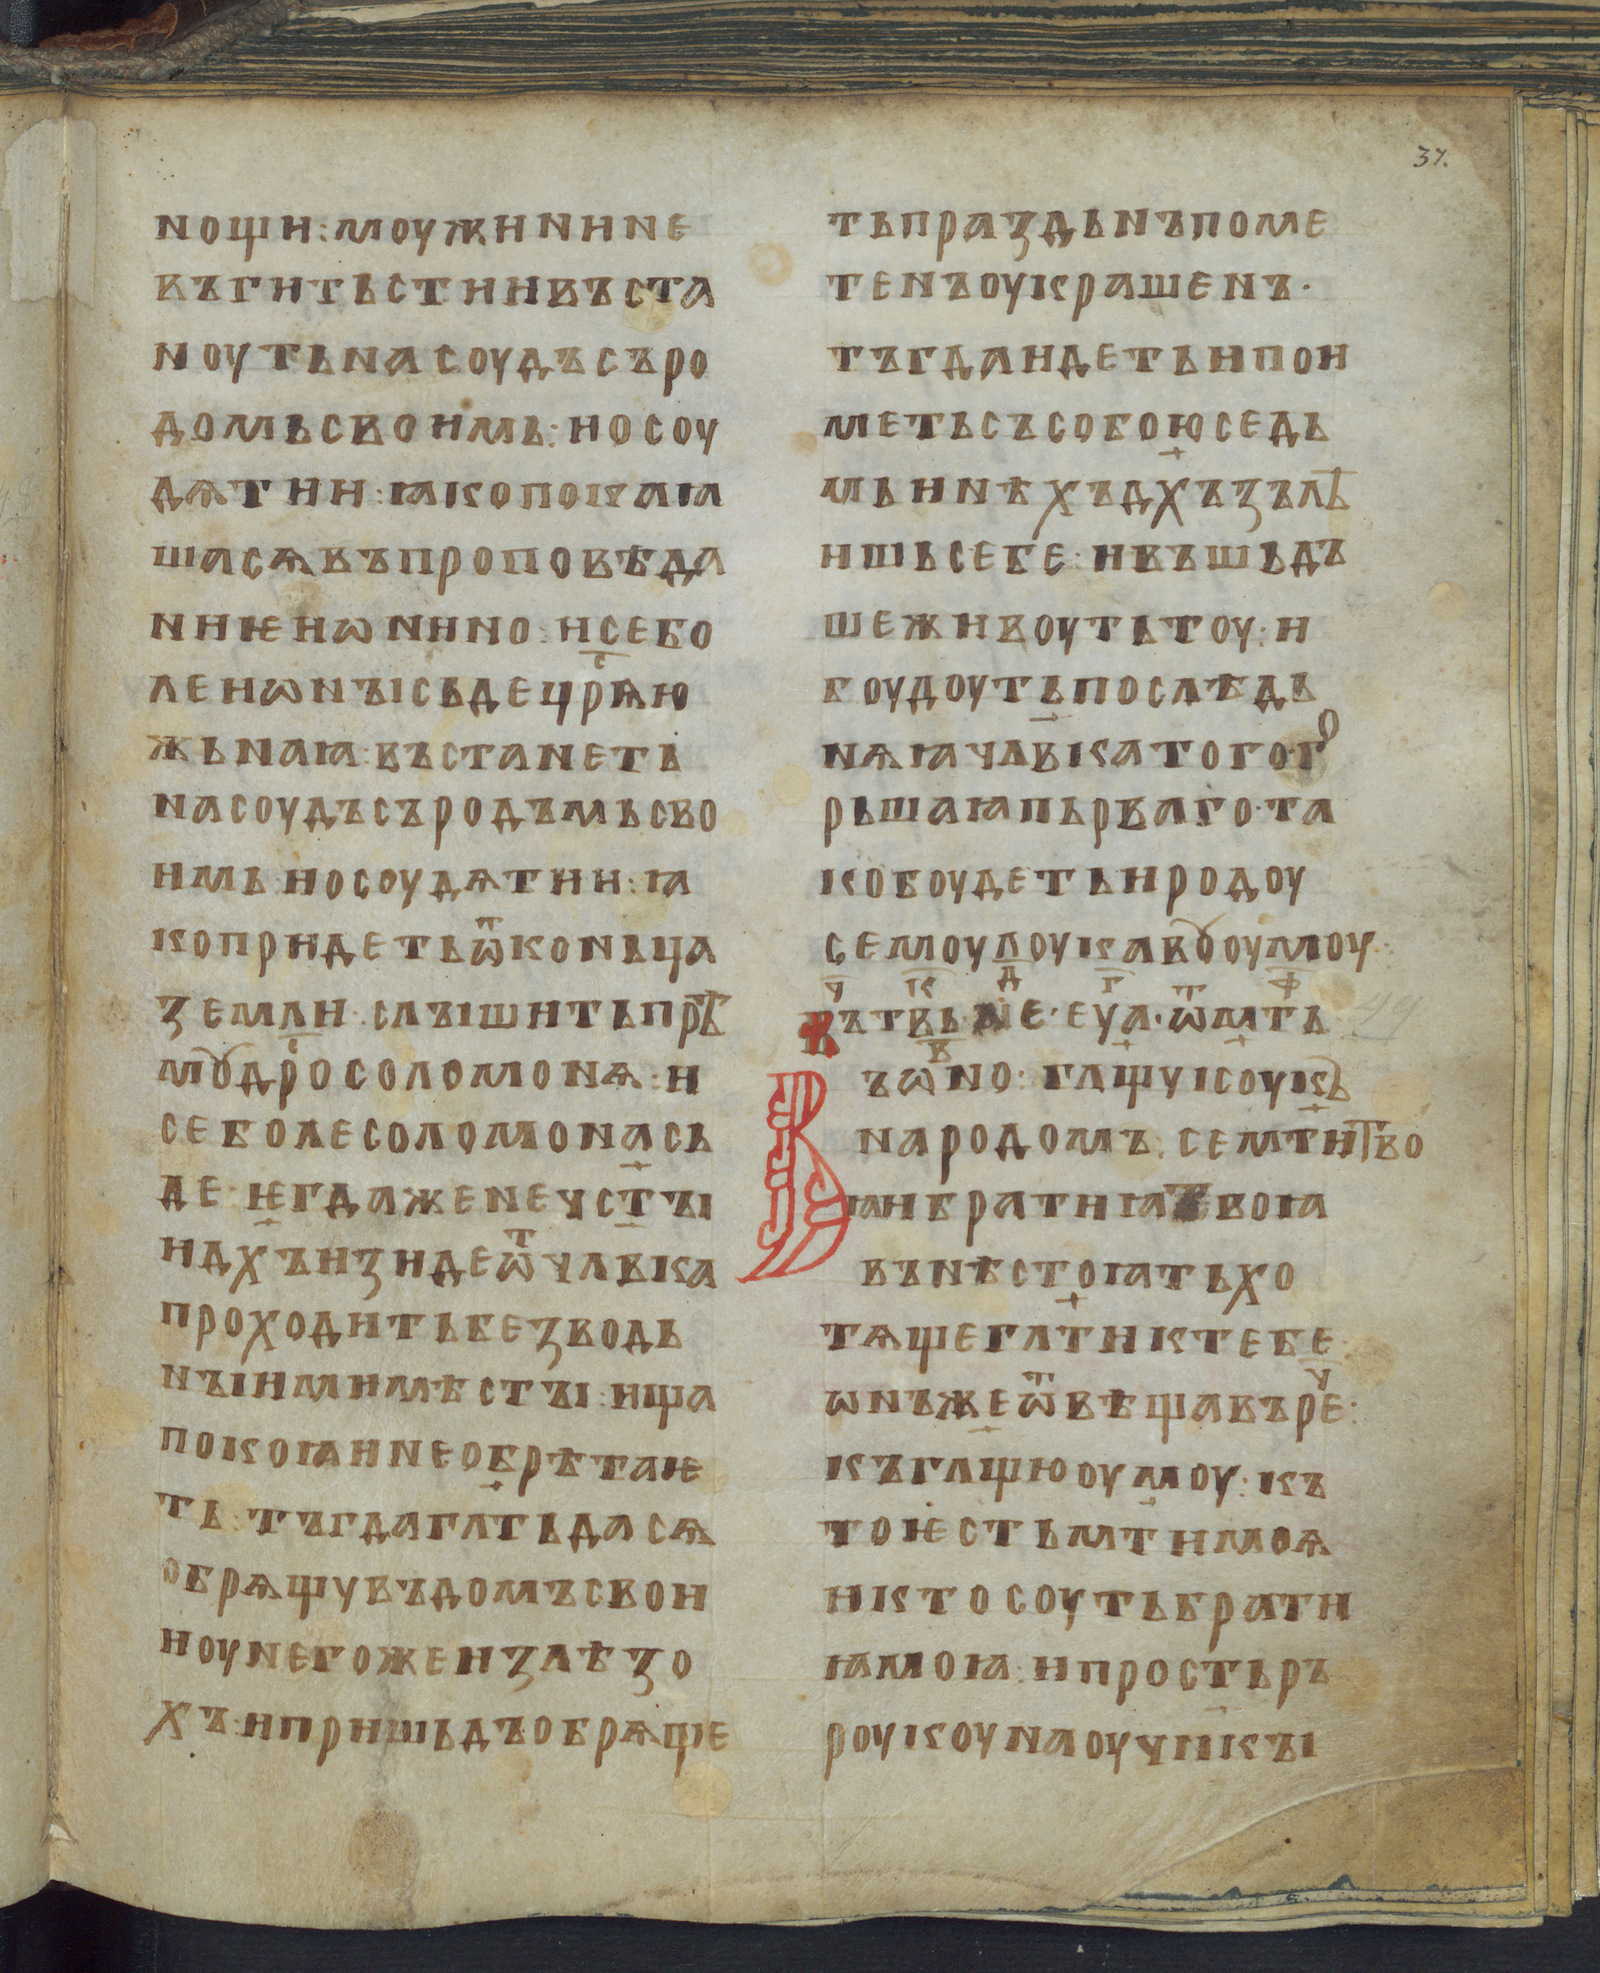 37.
нощи: моужи нине
въгитьстии въста
ноуть на соудъ съ ро
домь своимь: и осоу
дѧть ии: ꙗко покаꙗ
шасѧ въ проповѣда
ниѥ иѡнино: и се бо
ле иѡны сьде ц҃рѧ ю
жьнаꙗ: въстанеть
на соудъ съ родъмь сво
имь: и осоудѧть ии: ꙗ
ко придеть ѿ коньца
земли: слышить прѣ
мꙋдро соломонѧ: и
се боле соломона сь
де: ѥгда же неч҃сты
и дх҃ъ изиде ѿ чл҃вка
проходить безводь
ныими мѣсты: ища
покоꙗ и не обрѣтаѥ
ть: тъгда гл҃ть да сѧ
обрѧщу въ домъ свои
и оу него же излѣзо
хъ: и пришьдъ обрѧще
ть праздьнъ поме
тенъ оукрашенъ·
тъгда идеть и пои
меть съ собою седь
мь инѣхъ дх҃ъ зълѣ
ишь себе: и въшьдъ
ше живоуть тоу: и
боудоуть послѣдь
нѧꙗ чл҃вка того· го
рьшаꙗ пьрваго· та
ко боудеть и родоу
семоу лоукавꙋоумоу:
въ тъ вь· еу҃а· ѿ мт҃ъ
ъ ѡно: гл҃щу іс҃оу къ
народомъ: се мт҃и тво
ꙗ и братиꙗ твоꙗ
вънѣ стоꙗть хо
тѧще гл҃ти к тебе
ѡнъ же ѿвѣщавъ рече:
къ гл҃щюоумоу: къ
то ѥсть мт҃и моѧ
и кто соуть брати
ꙗ моꙗ: и простьръ
роукоу на оуч҃нкы